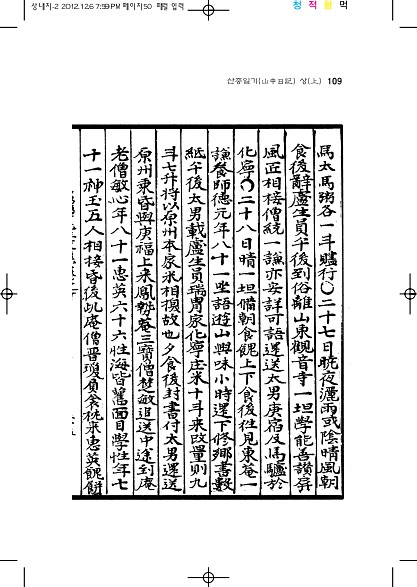 상내지-2 2012.12.6 7:59 PM 페이지50 패럴 입력
청 적 황 먹
산중일기(山中日記) 상(上) 109
馬太馬粥各一斗贐行○二十七日晩夜灑雨或陰晴風朝
食後辭盧生員午後到俗離山東觀音寺一坦學能善讃屏
風匠相接僧統一謙亦安詳可語還送太男庚宿及馬驢於
化寧○二十八日晴一坦備朝食餽上下食後往見東菴一
謙養師德元年八十一坐語遊山興味小時還下修鄕書數
紙午後太男載盧生員瑞胄家化寧庄米十斗來改量則九
斗七升將以原州本家米相換故也夕食後封書付太男還送
原州乘昏與庚福上來鳳棲菴三寶僧楚敏追送中途到庵
老僧敏心年八十一惠英六十六性海皆舊面目學性年七
十一神玉五人相接昏後乩庵僧晋瓊負笈桃來惠英餽餠